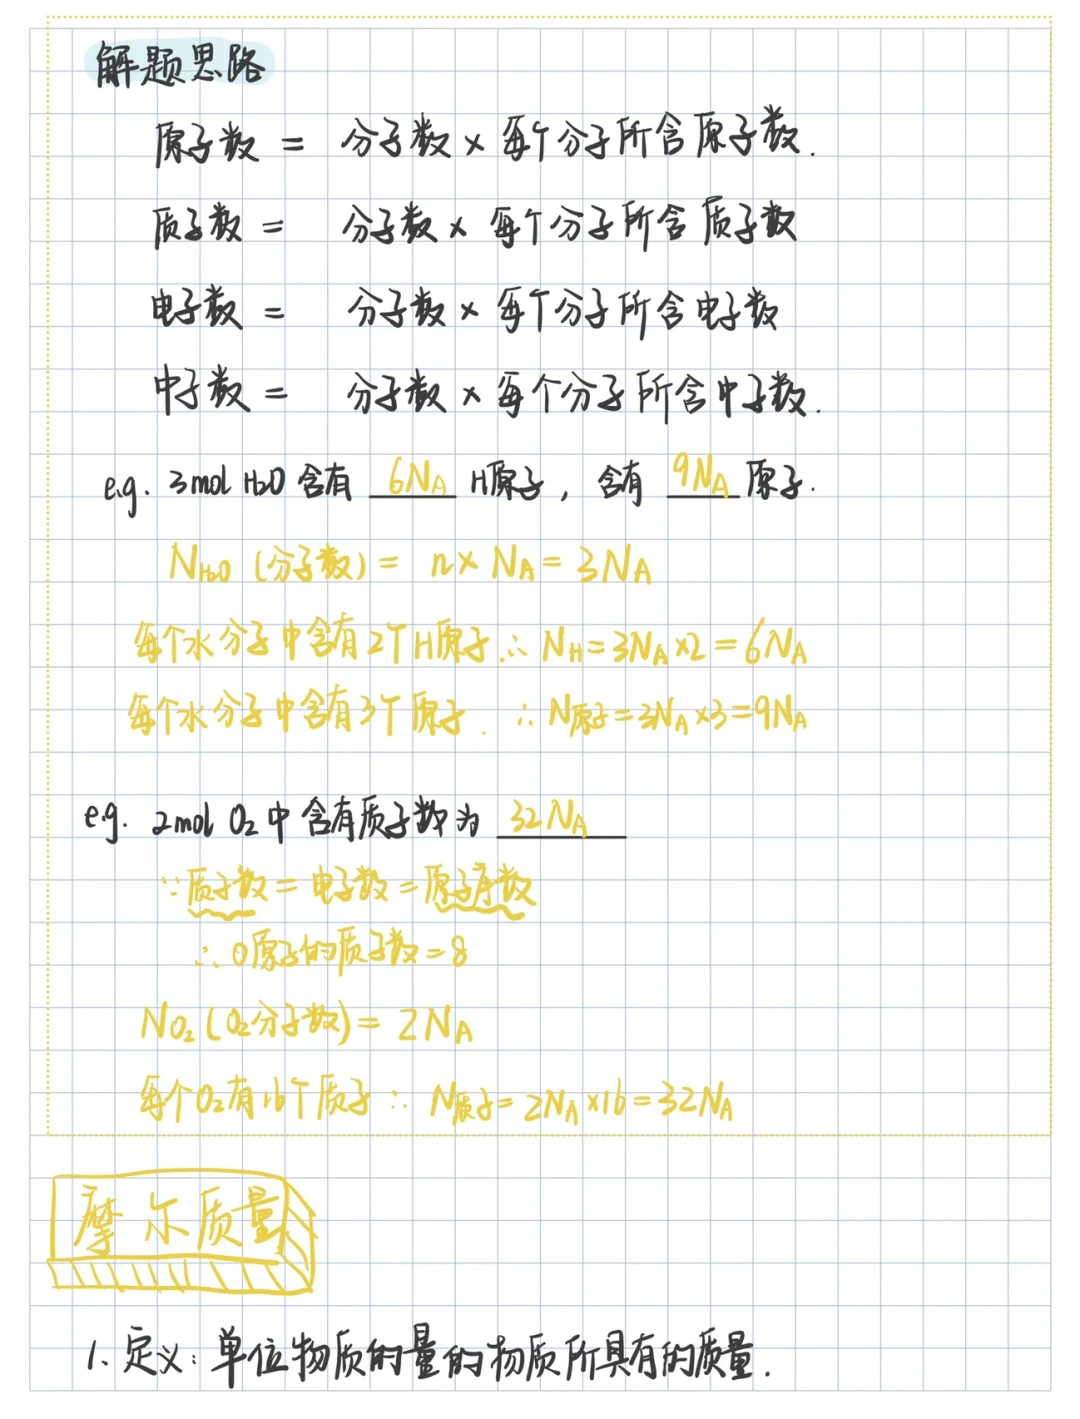 解题思路
原子数 = 分子数 × 每个分子所含原子数.
质子数 = 分子数 × 每个分子所含质子数
电子数 = 分子数 × 每个分子所含电子数
中子数 = 分子数 × 每个分子所含中子数.
e.g. 3mol H₂O 含有 6N_A H原子, 含有 9N_A 原子.
N_H₂O (分子数) = n × N_A = 3N_A
每个水分子中含有2个H原子. ∴ N_H = 3N_A × 2 = 6N_A
每个水分子中含有3个原子. ∴ N原子 = 3N_A × 3 = 9N_A
e.g. 2mol O₂中含有质子数为 32N_A
∵ 质子数 = 电子数 = 原子序数
∴ O原子的质子数 = 8
N_O₂ (O₂分子数) = 2N_A
每个O₂有16个质子 ∴ N质子 = 2N_A × 16 = 32N_A
摩尔质量
1、定义: 单位物质的量的物质所具有的质量.